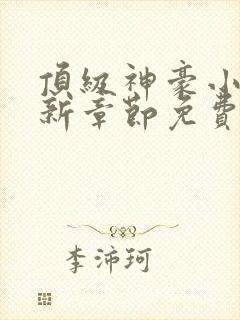 頂級神豪小
新章節免費
李沛珂